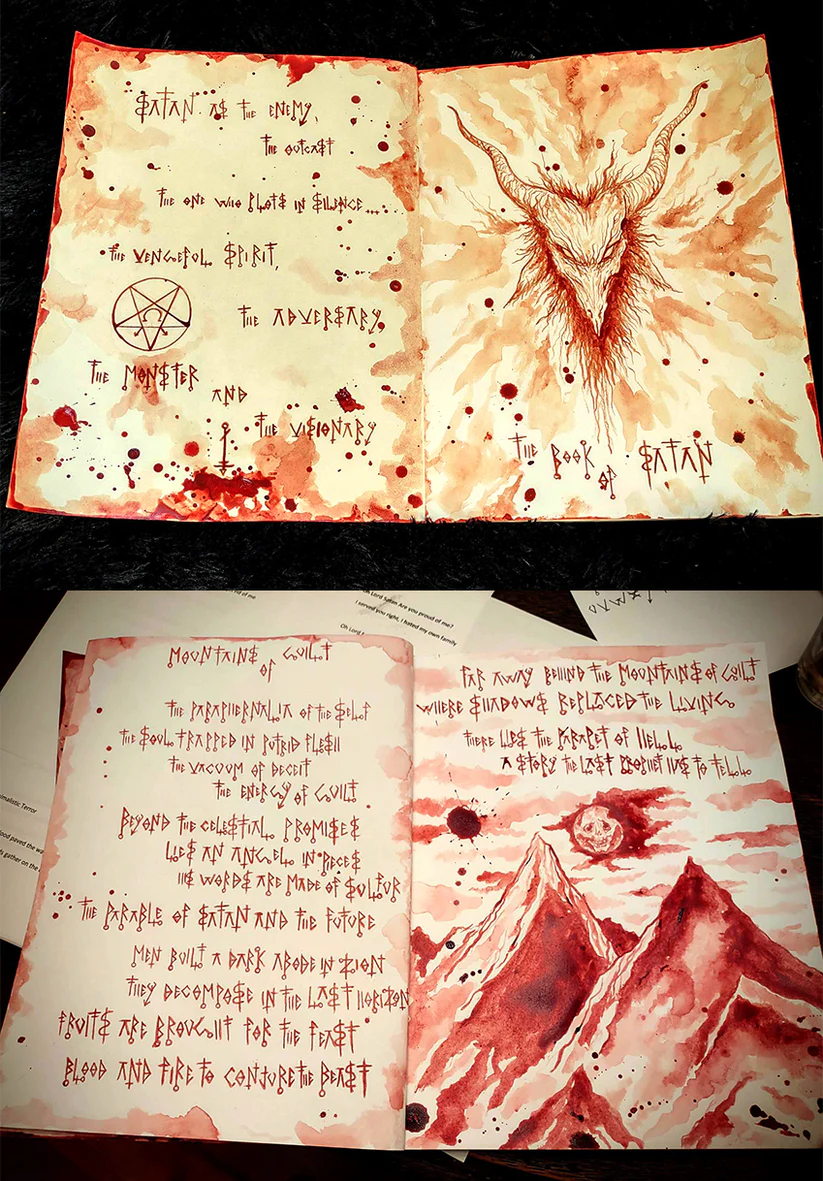 SATAN AS THE ENEMY,
THE OUTCAST
THE ONE WHO PLOTS IN SILENCE....
THE VENGEFUL SPIRIT,
THE ADVERSARY,
THE MONSTER
AND
THE VISIONARY
THE BOOK
OF SATAN
of me
Oh Lord Satan Are you proud of me?
I served you right, I hated my own family
Oh Lord
nimalistic Terror
ood paved the wa
ls gather on the
MOUNTAINS OF GUILT
THE PARAPHERNALIA OF THE SELF
THE SOUL TRAPPED IN PUTRID FLESH
THE VACUUM OF DECEIT
THE ENERGY OF GUILT
BEYOND THE CELESTIAL PROMISES
LIES AN ANGEL IN PIECES
HIS WORDS ARE MADE OF SULFUR
THE PARABLE OF SATAN AND THE FUTURE
MEN BUILT A DARK ABODE IN ZION
THEY DECOMPOSE IN THE LAST HORIZON
FRUITS ARE BROUGHT FOR THE FEAST
BLOOD AND FIRE TO CONJURE THE BEAST
FAR AWAY BEHIND THE MOUNTAINS OF GUILT
WHERE SHADOWS REPLACED THE LIVING
THERE LIES THE PARAPET OF HELL
A STORY THE LAST PROPHET HAS TO TELL